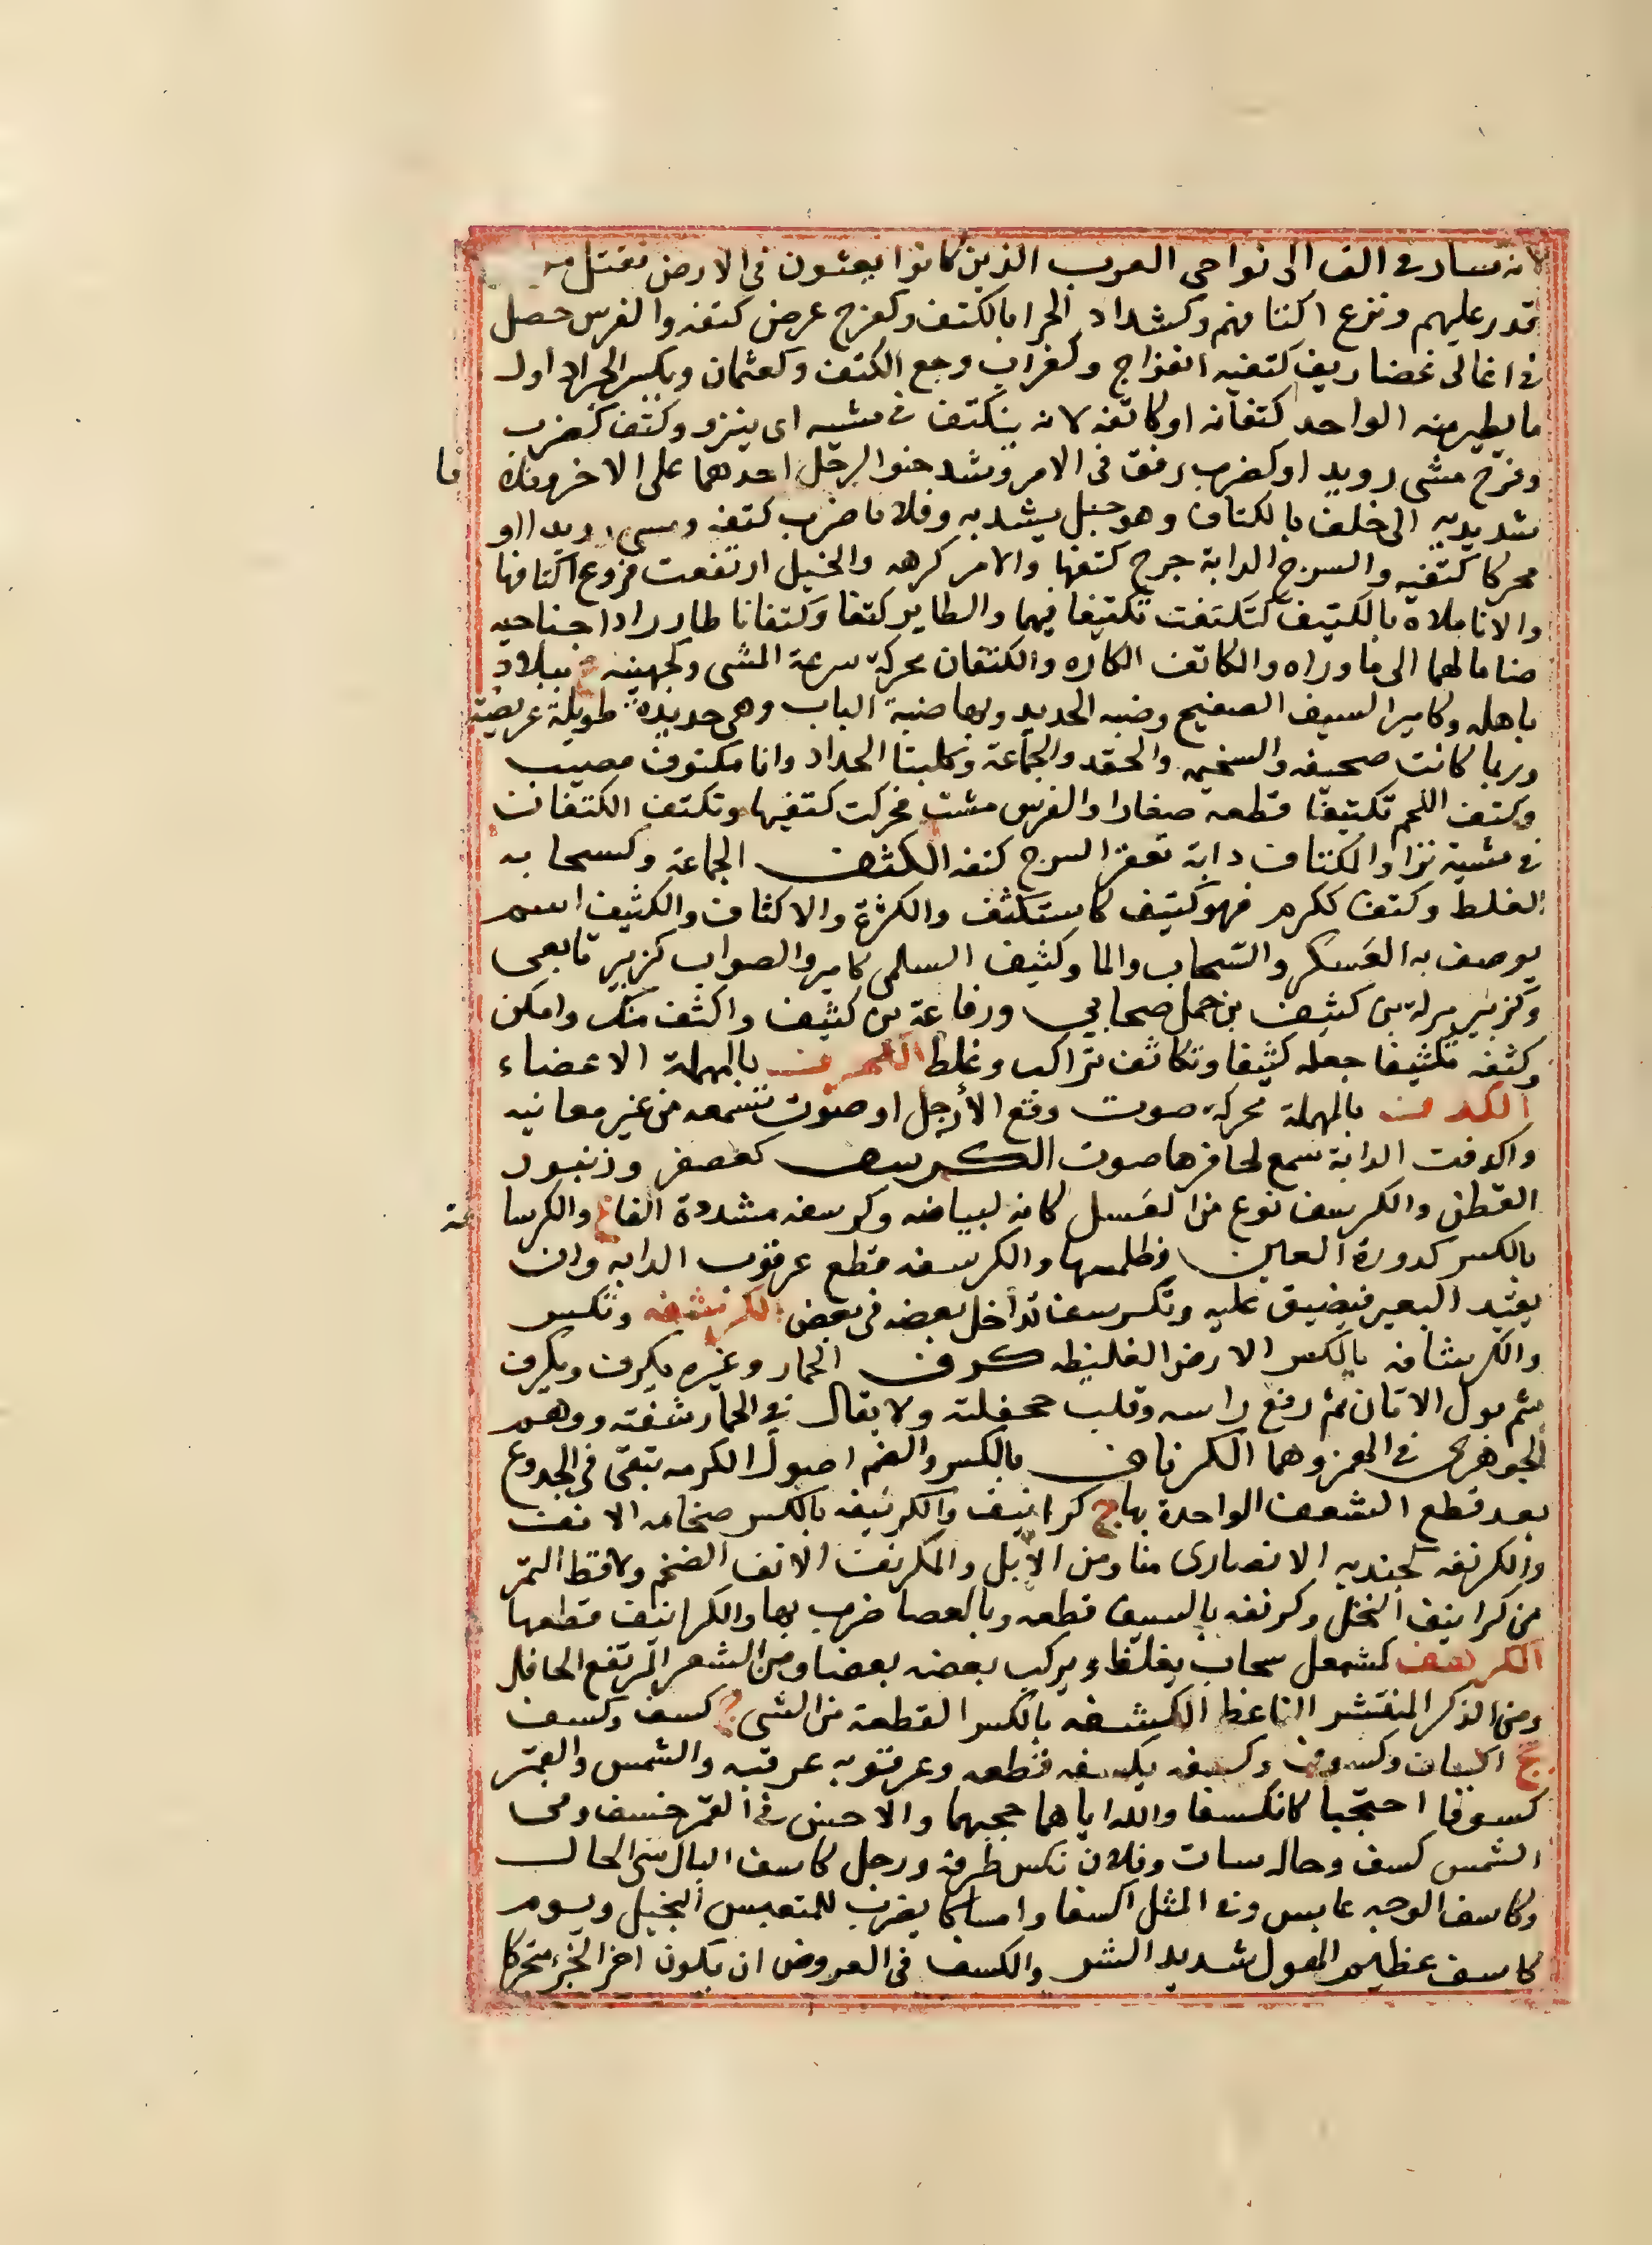 لانه سار في الف الى نواحي العرب الذين كانوا يعبثون في الارض فقتل من
قدر عليهم ونزع اكتافهم وكشداد الحرا بالكتف وكفرح عرض كتفه والفرس حصل
في اعالي غضاريف كتفيه انفراج وكغراب وجع الكتف وكعثمان ويكسر الجراد اول
ما يطير منه الواحد كتفانه او كاتفه لانه يتكتف في مشيه اى ينزو وكتف كضرب
وفرح مشى رويدا وكضرب رفق في الامر وشد حنوا الرحل احدهما على الاخر وفلانا
شد يديه الى خلف بالكتاف وهو حبل يشد به وفلانا ضرب كتفه ومشى رويدا او
محركا كتفيه والسرج الدابة جرح كتفها والامر كرهه والخيل ارتفعت فروع اكتافها
والانا ملاه بالكتيف كتكتفت تكتيفا فيهما والطاير كتفا وكتفانا طار رادا جناحيه
ضاما لهما الى ما وراه والكاتف الكاره والكتفان محركة سرعة المشي وكجهينه ع ببلاد
باهله وكامير السيف الصفيح وضبه الحديد وبها ضبة الباب وهي حديدة طويلة عريضة
وربما كانت صحيفه والسخيمه والحقد والجماعة وكلبتا الحداد وانا مكتوف مضبب
وكتف اللحم تكتيفا قطعه صغارا والفرس مشت فحركت كتفيها وتكتف الكتفان
في مشيه نزا والمكتاف دابة تعقر السرج كتفه الكثف الجماعة وكسحابه
الغلظ وكثف ككرم فهو كثيف كاستكثف والكثرة والاكثاف والكثيف اسم
يوصف به العسكر والسحاب والما وكثيف السلمي كامير والصواب كزبير تابعي
وكزبير برلة بن كثيف بن حمل صحابي ورفاعة بن كثيف واكثف منك وامكن
وكثفه تكثيفا جعله كثيفا وتكاثف تراكب وغلظ الكحوف بالمهملة الاعضاء
الكدف بالمهملة محركة صوت وقع الأرجل او صوت تسمعه من غير معاينه
واكدفت الدابة سمع لحافرها صوت الكرسف كعصفر وزنبور
القطن والكرسف نوع من العسل كانه لبياضه وكرسفه مشددة الفاع والكرسافة
بالكسر كدورة العين وظلمتها والكرسفه قطع عرقوب الدابه وان
يقيد البعير فيضيق عليه وتكرسف تداخل بعضه في بعض الكرشفه وتكسر
والكرشافه بالكسر الارض الغليظه كرف الحمار وغيره يكرف ويكرف
شم بول الاتان ثم رفع راسه وقلب جحفلته ولا يقال في الحمار شفته ووهم
الجوهرى في الهمز وهما الكرناف بالكسر والضم اصول الكرب تبقى في الجدوع
بعد قطع السعف الواحدة بها ج كرانيف والكرنيفه بالكسر ضخامه الانف
والكرنفه لجنديه الانصارى منا ومن الابل والمكرنف الانف الضخم ولاقط التمر
من كرانيف النخل وكرنفه بالسيف قطعه وبالعصا ضرب بها والكرانيف قطعها
الكرهف كشمعل سحاب يغلظ ويركب بعضه بعضا ومن الشعر المرتفع الحافل
ومن الذكر المنتشر الناعظ الكسفه بالكسر القطعة من الشي ج كسف وكسف
جج اكساف وكسوف وكسفه يكسفه قطعه وعرقوبه عرقبه والشمس والقمر
كسوفا احتجبا كانكسفا والله اياهما حجبهما والاحسن في القمر خسف وفي
الشمس كسف وحاله سات وفلان نكس طرفه ورجل كاسف البال سى الحال
وكاسف الوجه عابس وفي المثل اكسفا وامساكا يضرب للمتعبس البخيل ويوم
كاسف عظيم الهول شديد الشر والكسف في العروض ان يكون اخر الجزء متحركا